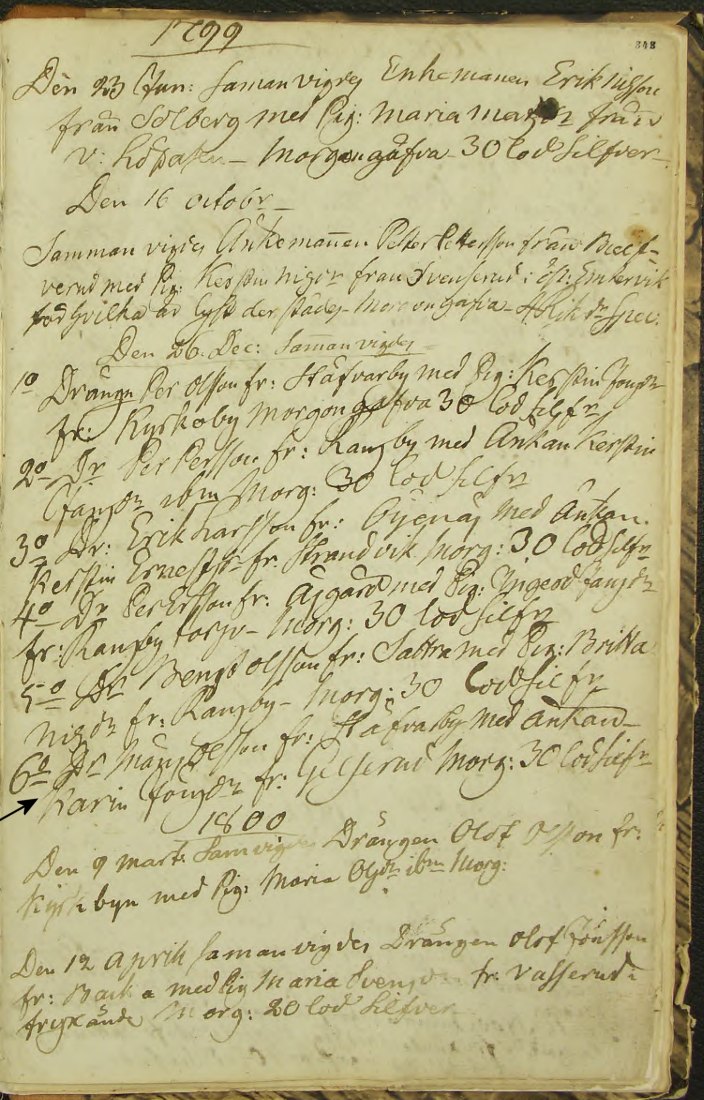 1799
848
Den 23 Jun: Samanvigdes Enkemanen Erik Nilsson
från Solberg med Pig: Maria från
V: Löpaten – Morgongåfva – 30 lod Silfver
Den 16 octobr
Samman vigdes Änkemanen Petter Pettersson från
med Pig: Kerstin Nigdr från Svenserud i öst: Emtervik
hvilka är lyst derstädes – Morgongåfva
Den 26 Dec: Samanvigdes
1o Drängn Per Olsson fr: Stafvarby med Pig: Kerstin Jonsdr
fr: Kyrkoby Morgongåfva 30 lod silfr
2o Dr Per Persson fr: Rangby med Änkan Kerstin
ibm Morg: 30 lod silfr
3o Dr: Erik Larsson fr: med Änkan
Kerstin Ernestsdr fr. Strandvik Morg: 30 lod silfr
4o Dr Per Ersson fr: Åsgård med Pig: Ingeod Jansdr
fr: Rangby – Morg: 30 lod silfr
5o Dr Bengt Olsson fr: Sättra med Pig: Britta
Nigdr fr: Rangby – Morg: 30 lod silfr
6o Dr Måns Olsson fr: Stafvarby med änkan
Karin Jönsdr fr: Gilserud Morg: 30 lod silfr
1800
Den 9 Marti Samvigdes Drängen Olof Olsson fr:
Kyrkbyn med Pig: Maria Olsdr ibm Morg:
Den 12 Aprill samanvigdes Drängen Olof Jönsson
fr: Backa med Pig Maria fr: Vasserud i
fryxände Morg: 20 lod silfver